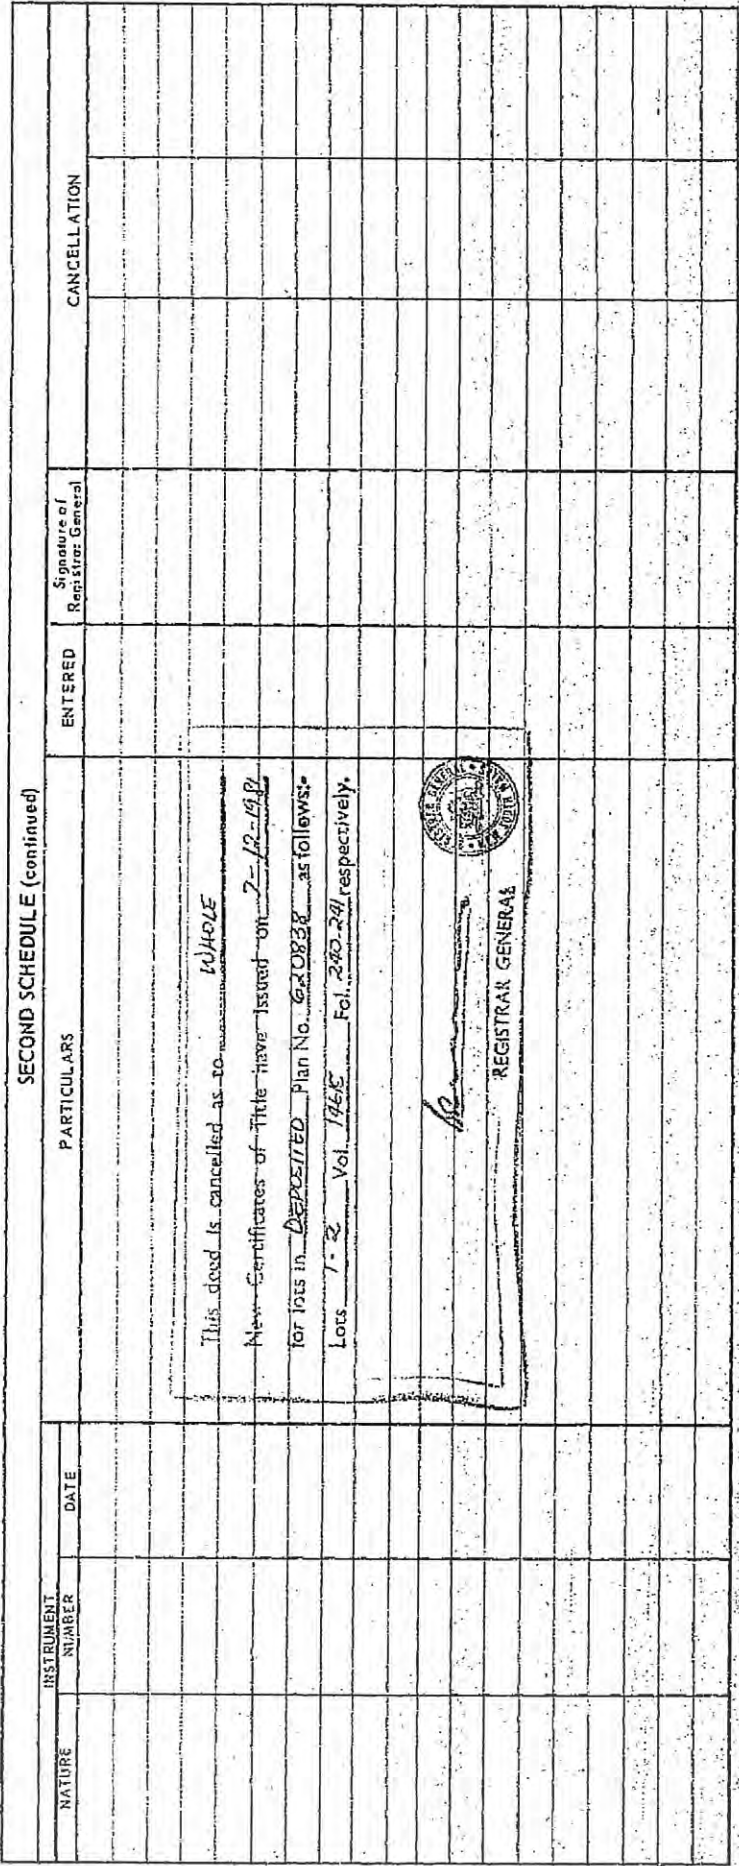 SECOND SCHEDULE (continued)
INSTRUMENT
NATURE NUMBER DATE PARTICULARS ENTERED Signature of Registrar General CANCELLATION
This deed is cancelled as to WHOLE
New Certificates of Title have issued on 7-12-1981
for lots in DEPOSITED Plan No. 620838 as follows:-
Lots 1-2 Vol. 14615 Fol. 240-241 respectively.
REGISTRAR GENERAL